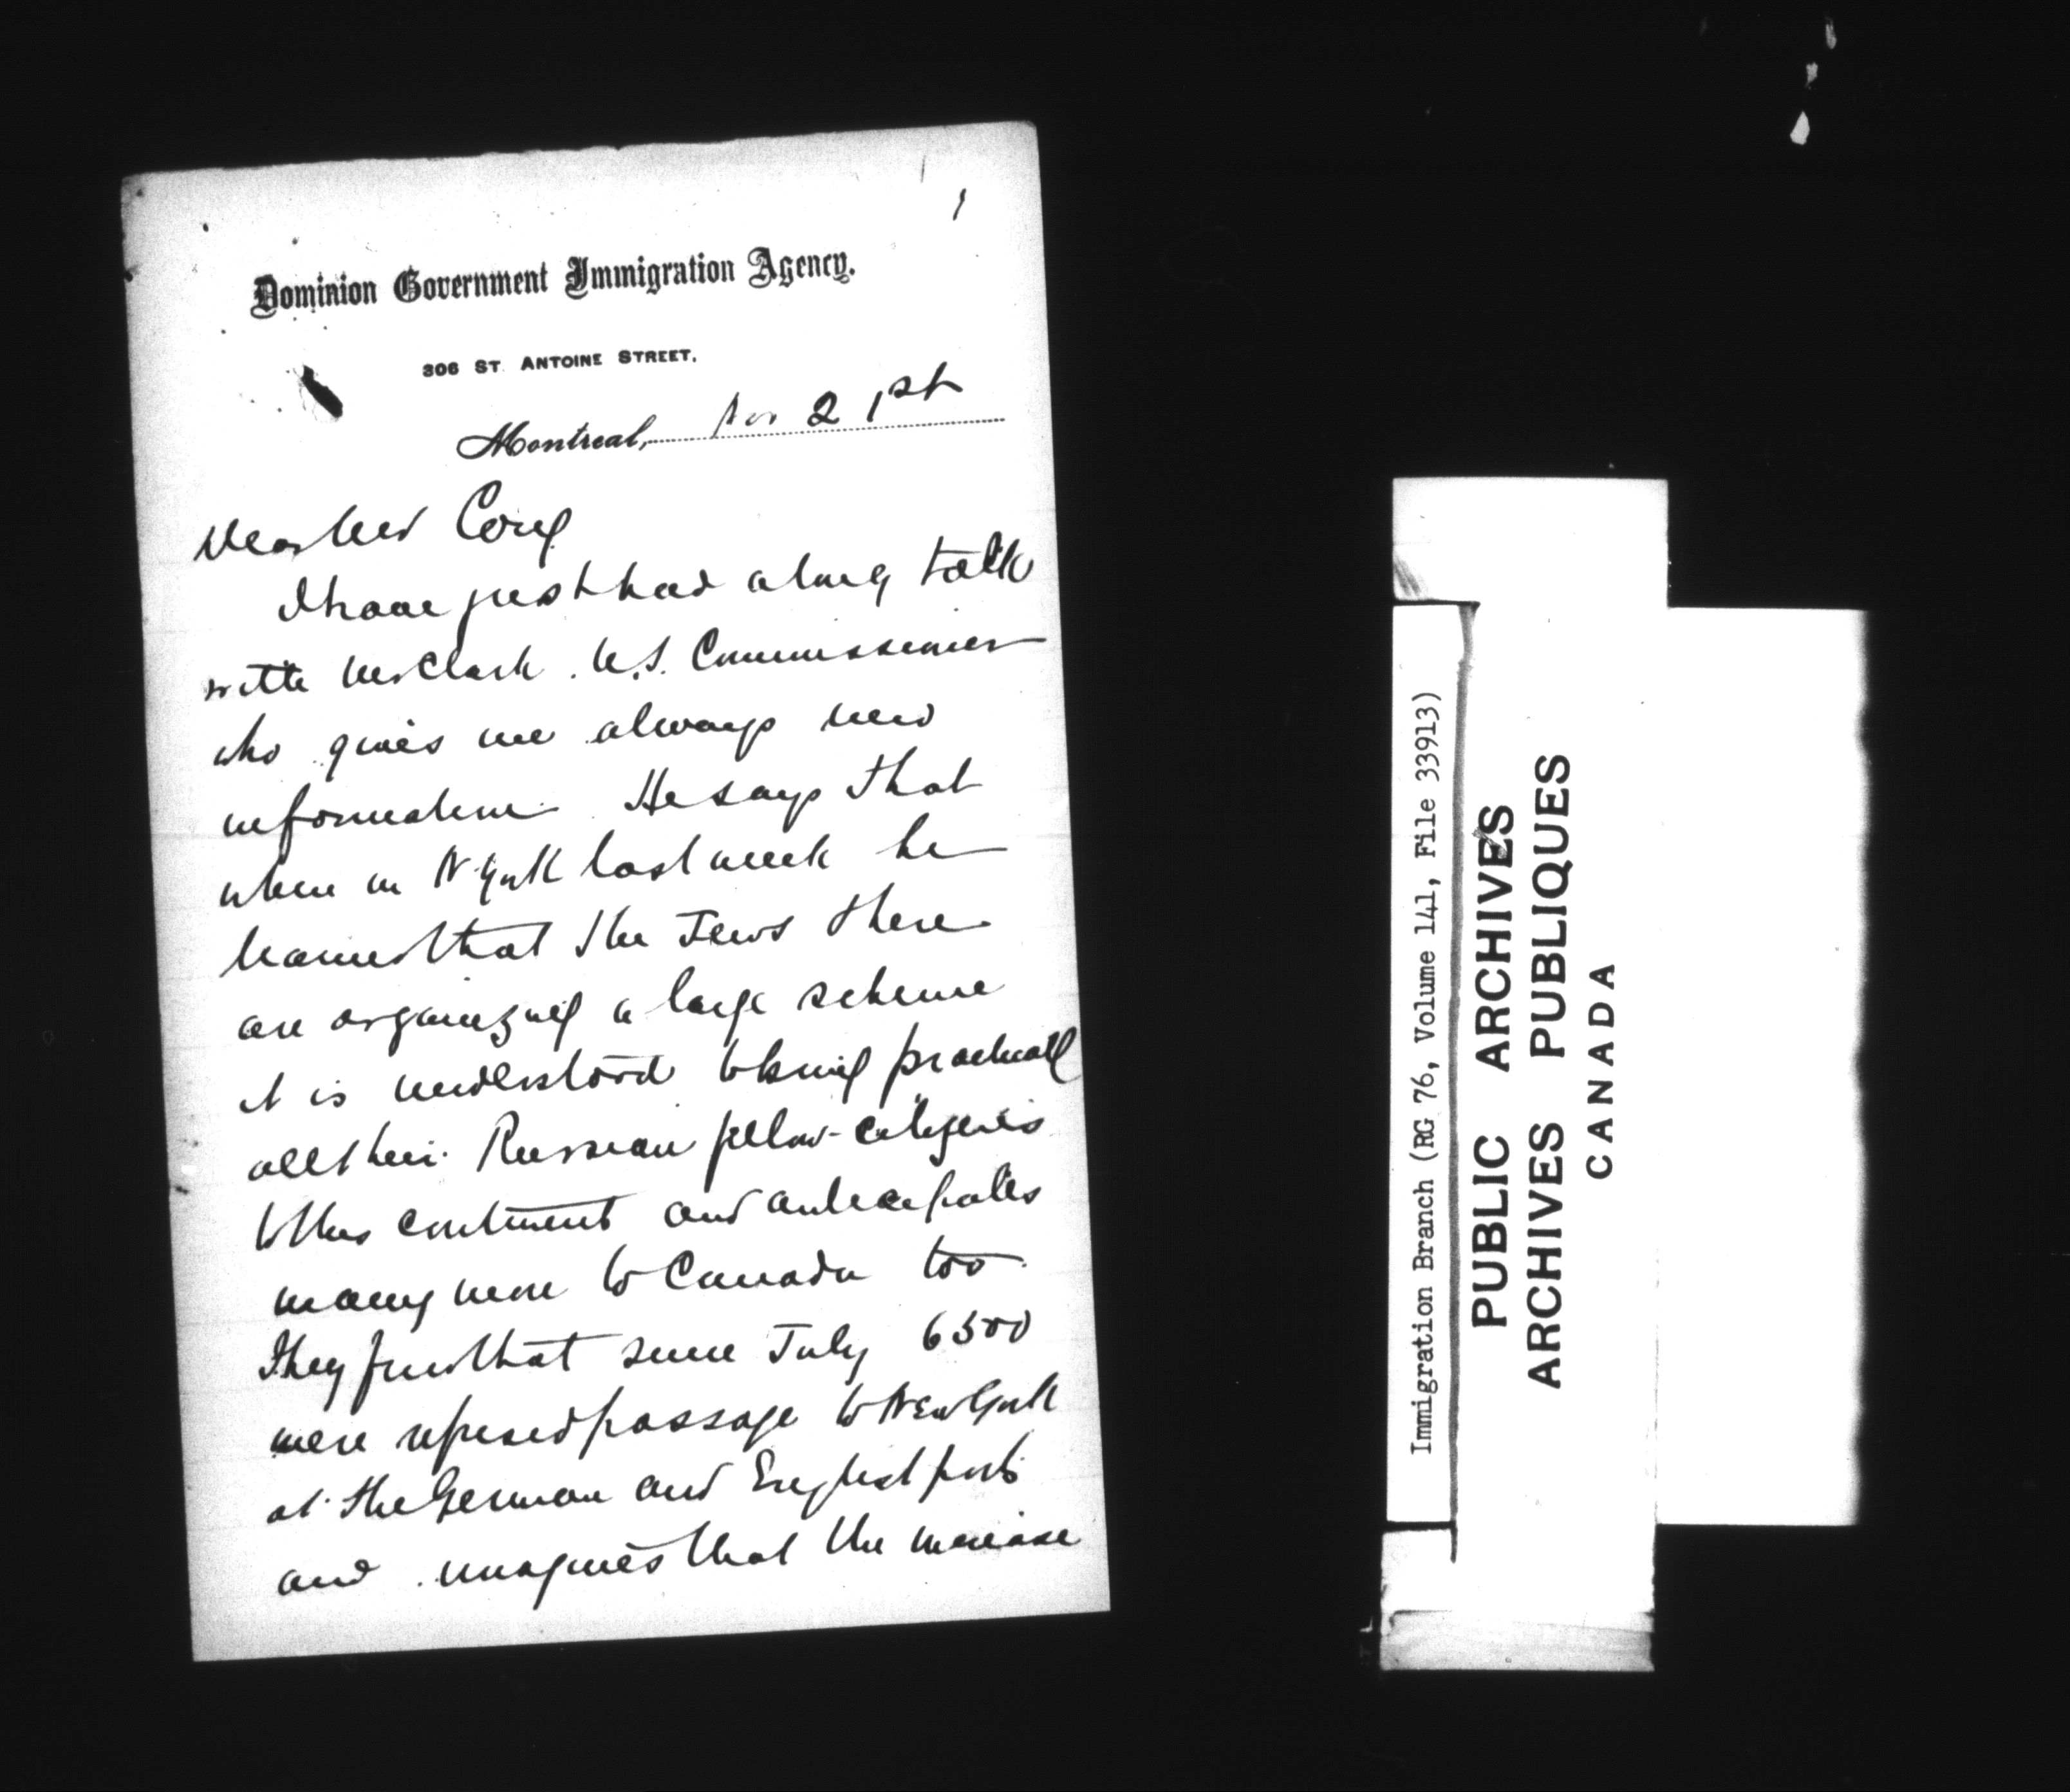 1
Dominion Government Immigration Agency.
306 ST. ANTOINE STREET,
Montreal, Nov 21st
Dear Mr Cory
I have just had a long talk
with Mr Clark. U.S. Commissioner
who gives me always new
information. He says that
when in N. York last week he
learned that the Jews there
are organizing a large scheme
it is understood to bring practically
all their Russian fellow-citizens
to this continent and anticipates
many more to Canada too.
They find that since July 6500
were refused passage to New York
at the German and English ports
and imagines that the increase
Immigration Branch (RG 76, Volume 141, File 33913)
PUBLIC ARCHIVES
ARCHIVES PUBLIQUES
CANADA